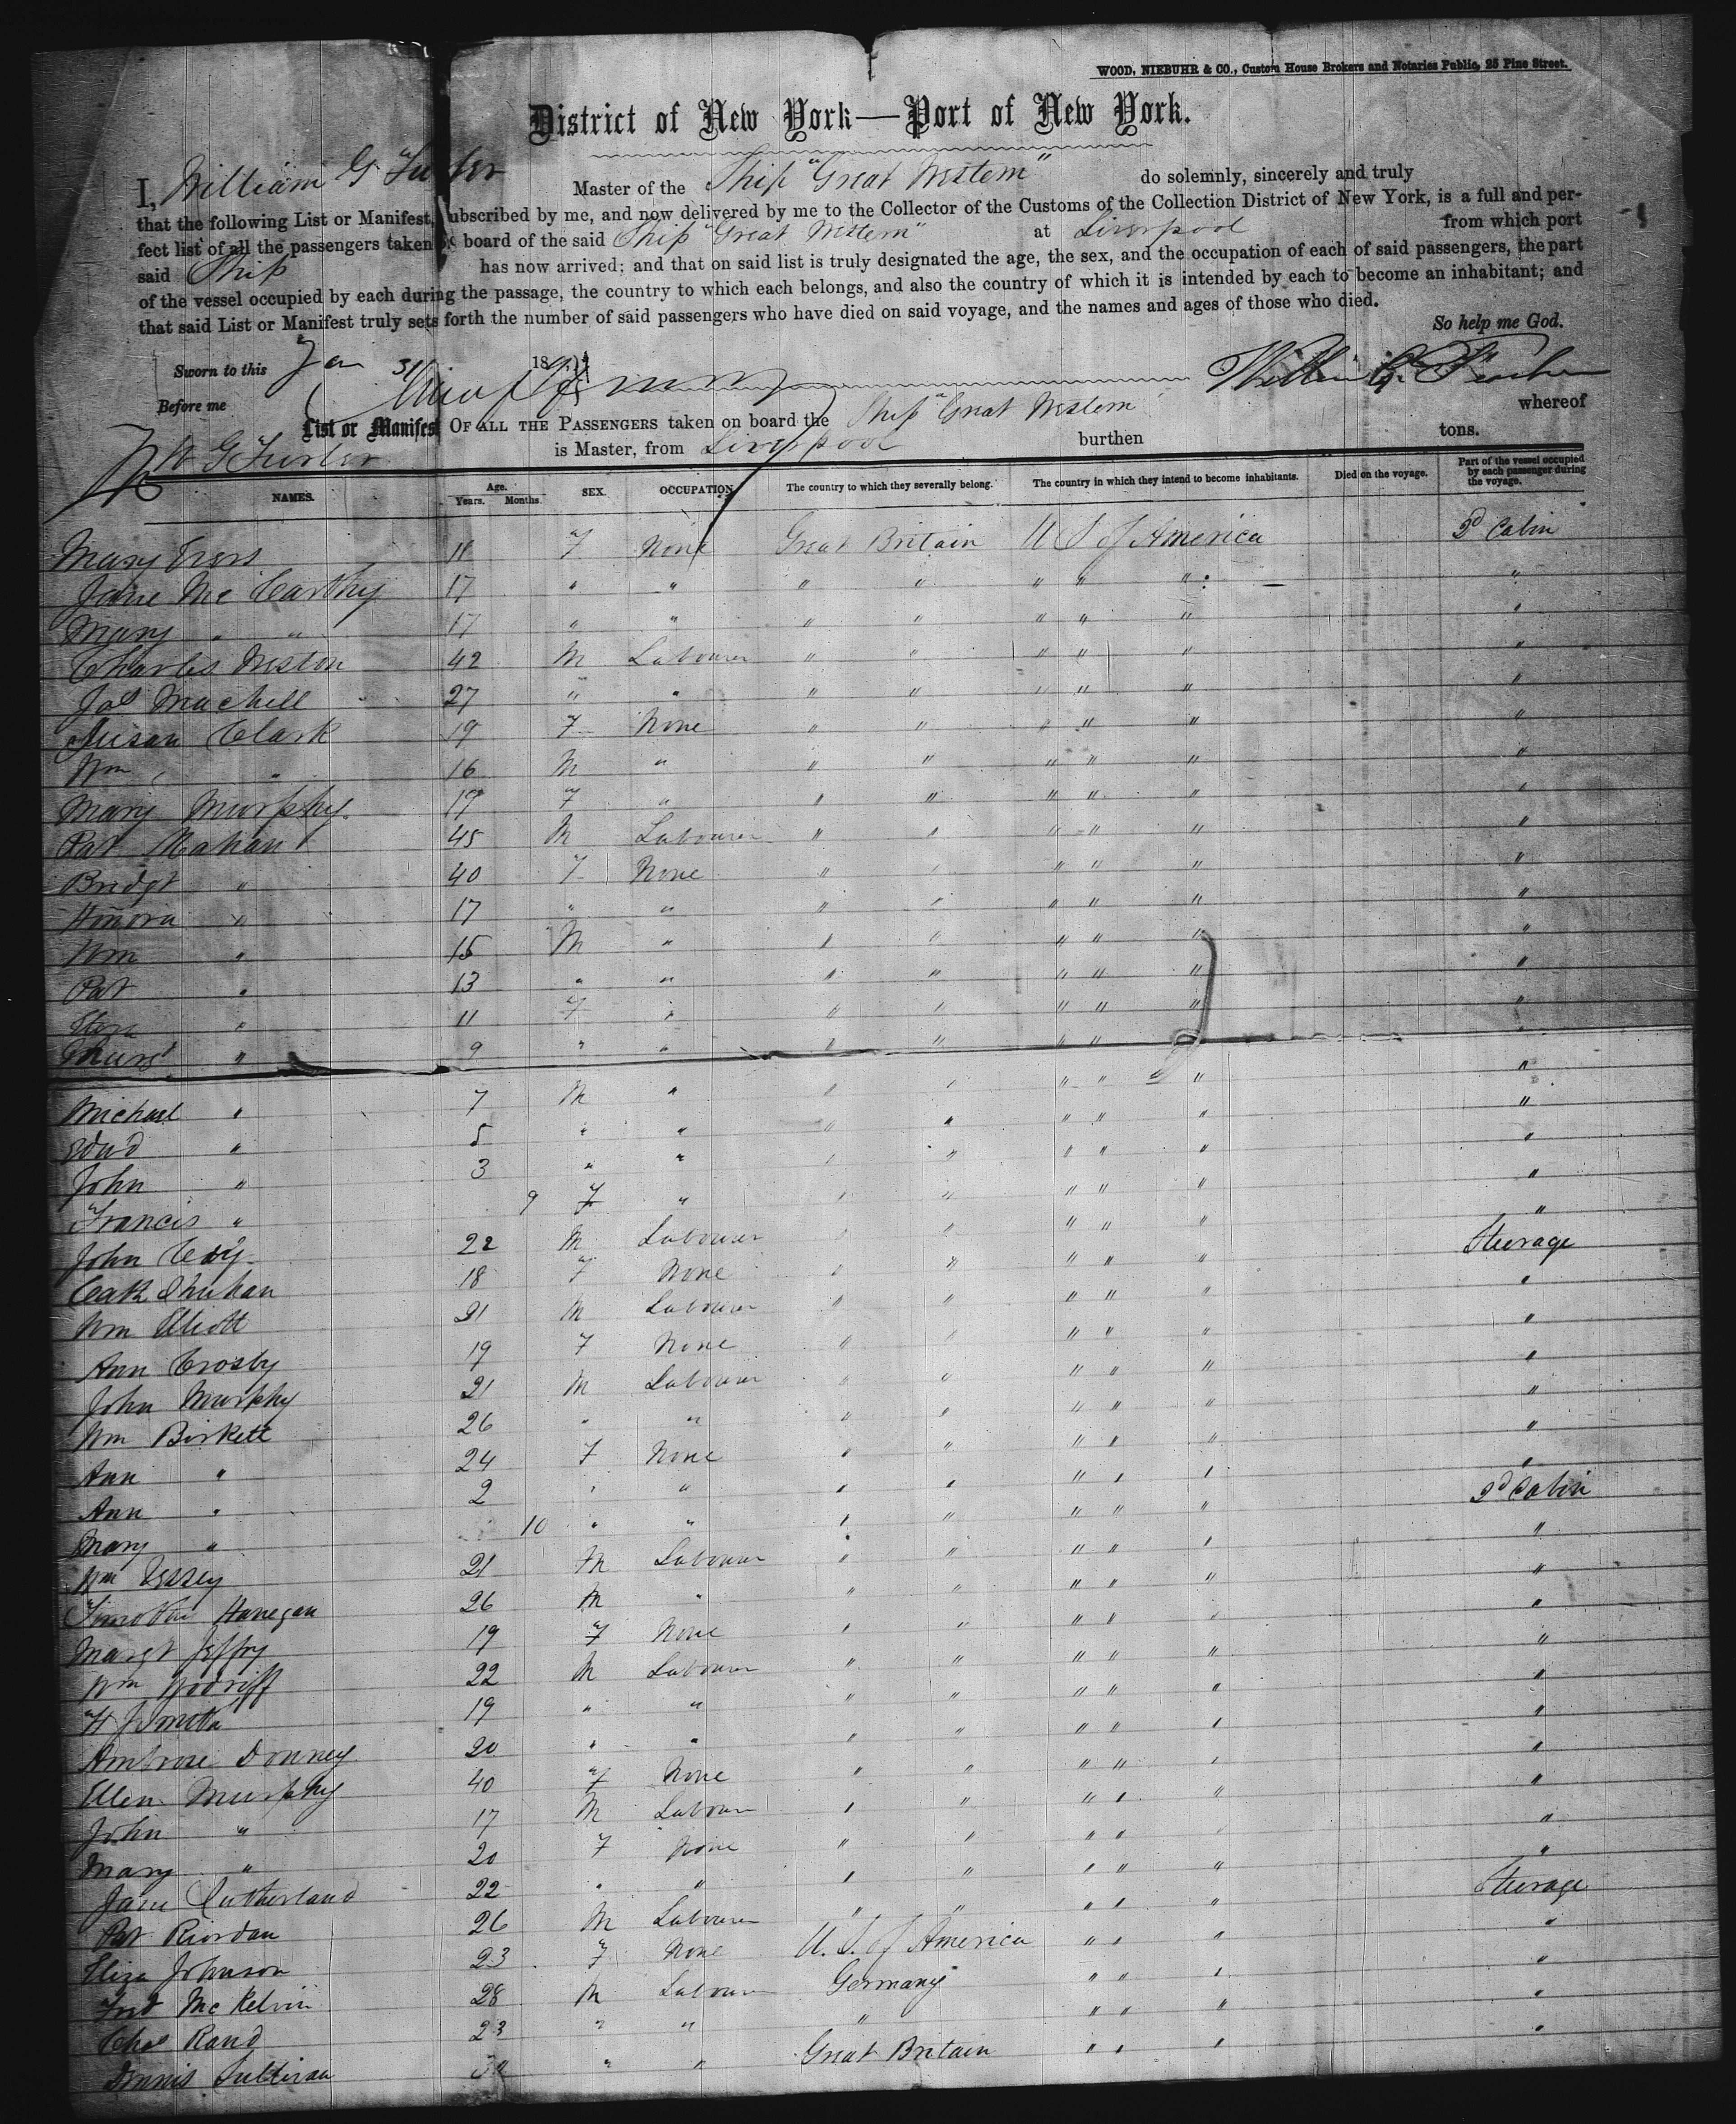 WOOD, NIEBUHR & CO., Custom House Brokers and Notaries Public, 25 Pine Street.
District of New York—Port of New York.
I, William G Master of the Ship "Great Western" do solemnly, sincerely and truly
that the following List or Manifest, ubscribed by me, and now delivered by me to the Collector of the Customs of the Collection District of New York, is a full and per-
fect list of all the passengers taken board of the said Ship "Great Western" at Liverpool from which port
said Ship has now arrived; and that on said list is truly designated the age, the sex, and the occupation of each of said passengers, the part
of the vessel occupied by each during the passage, the country to which each belongs, and also the country of which it is intended by each to become an inhabitant; and
that said List or Manifest truly sets forth the number of said passengers who have died on said voyage, and the names and ages of those who died.
So help me God.
Sworn to this Jan 31 18
Before me
List or Manifest OF ALL THE PASSENGERS taken on board the Ship "Great Western whereof
W G is Master, from Liverpool burthen tons.
NAMES. Age. Years. Months. SEX. OCCUPATION The country to which they severally belong. The country in which they intend to become inhabitants. Died on the voyage. Part of the vessel occupied by each passenger during the voyage.
Mary 11 F None Great Britain U S of America 2d Cabin
Jane Mc Carthy 17 " " " " " " " "
Mary " " 17 " " " " " " " "
Charles Weston 42 M Labourer " " " " " "
Jas Machell 27 " " " " " " " "
Susan Clark 19 F None " " " " " "
Wm " 16 M " " " " " " "
Mary Murphy 19 F " " " " " " "
Pat Mahan 45 M Labourer " " " " " "
Bridgt " 40 F None " " " " " "
Honora " 17 " " " " " " " "
Wm " 15 M " " " " " " "
Pat " 13 " " " " " " " "
" 11 F " " " " " " "
" 9 " " " " " " " "
Michael " 7 M " " " " " " "
Edwd " 5 " " " " " " " "
John " 3 " " " " " " " "
Francis " 9 F " " " " " " "
John 22 M Labourer " " " " " Steerage
Cath 18 F None " " " " " "
Wm Elliott 21 M Labourer " " " " " "
Ann Crosby 19 F None " " " " " "
John Murphy 21 M Labourer " " " " " "
Wm Birkett 26 " " " " " " " "
Ann " 24 F None " " " " " "
Ann " 2 " " " " " " " "
Mary " 10 " " " " " " " 2d Cabin
Wm 21 M Labourer " " " " " "
Timothy Hanegan 26 M " " " " " " "
Margt Jeffry 19 F None " " " " " "
Wm 22 M Labourer " " " " " "
H 19 " " " " " " " "
Ambrose Donney 20 " " " " " " " "
Ellen Murphy 40 F None " " " " " "
John " 17 M Labour " " " " " "
Mary " 20 F None " " " " " "
Jane Sutherland 22 " " " " " " " "
Pat Riordan 26 M Labourer " " " " " Steerage
Eliza Johnson 23 F None U. S. of America " " " "
Mc Kelvin 28 M Labourer Germany " " " "
Chas Rand 23 " " " " " " "
Dennis Sullivan " " Great Britain " " " "